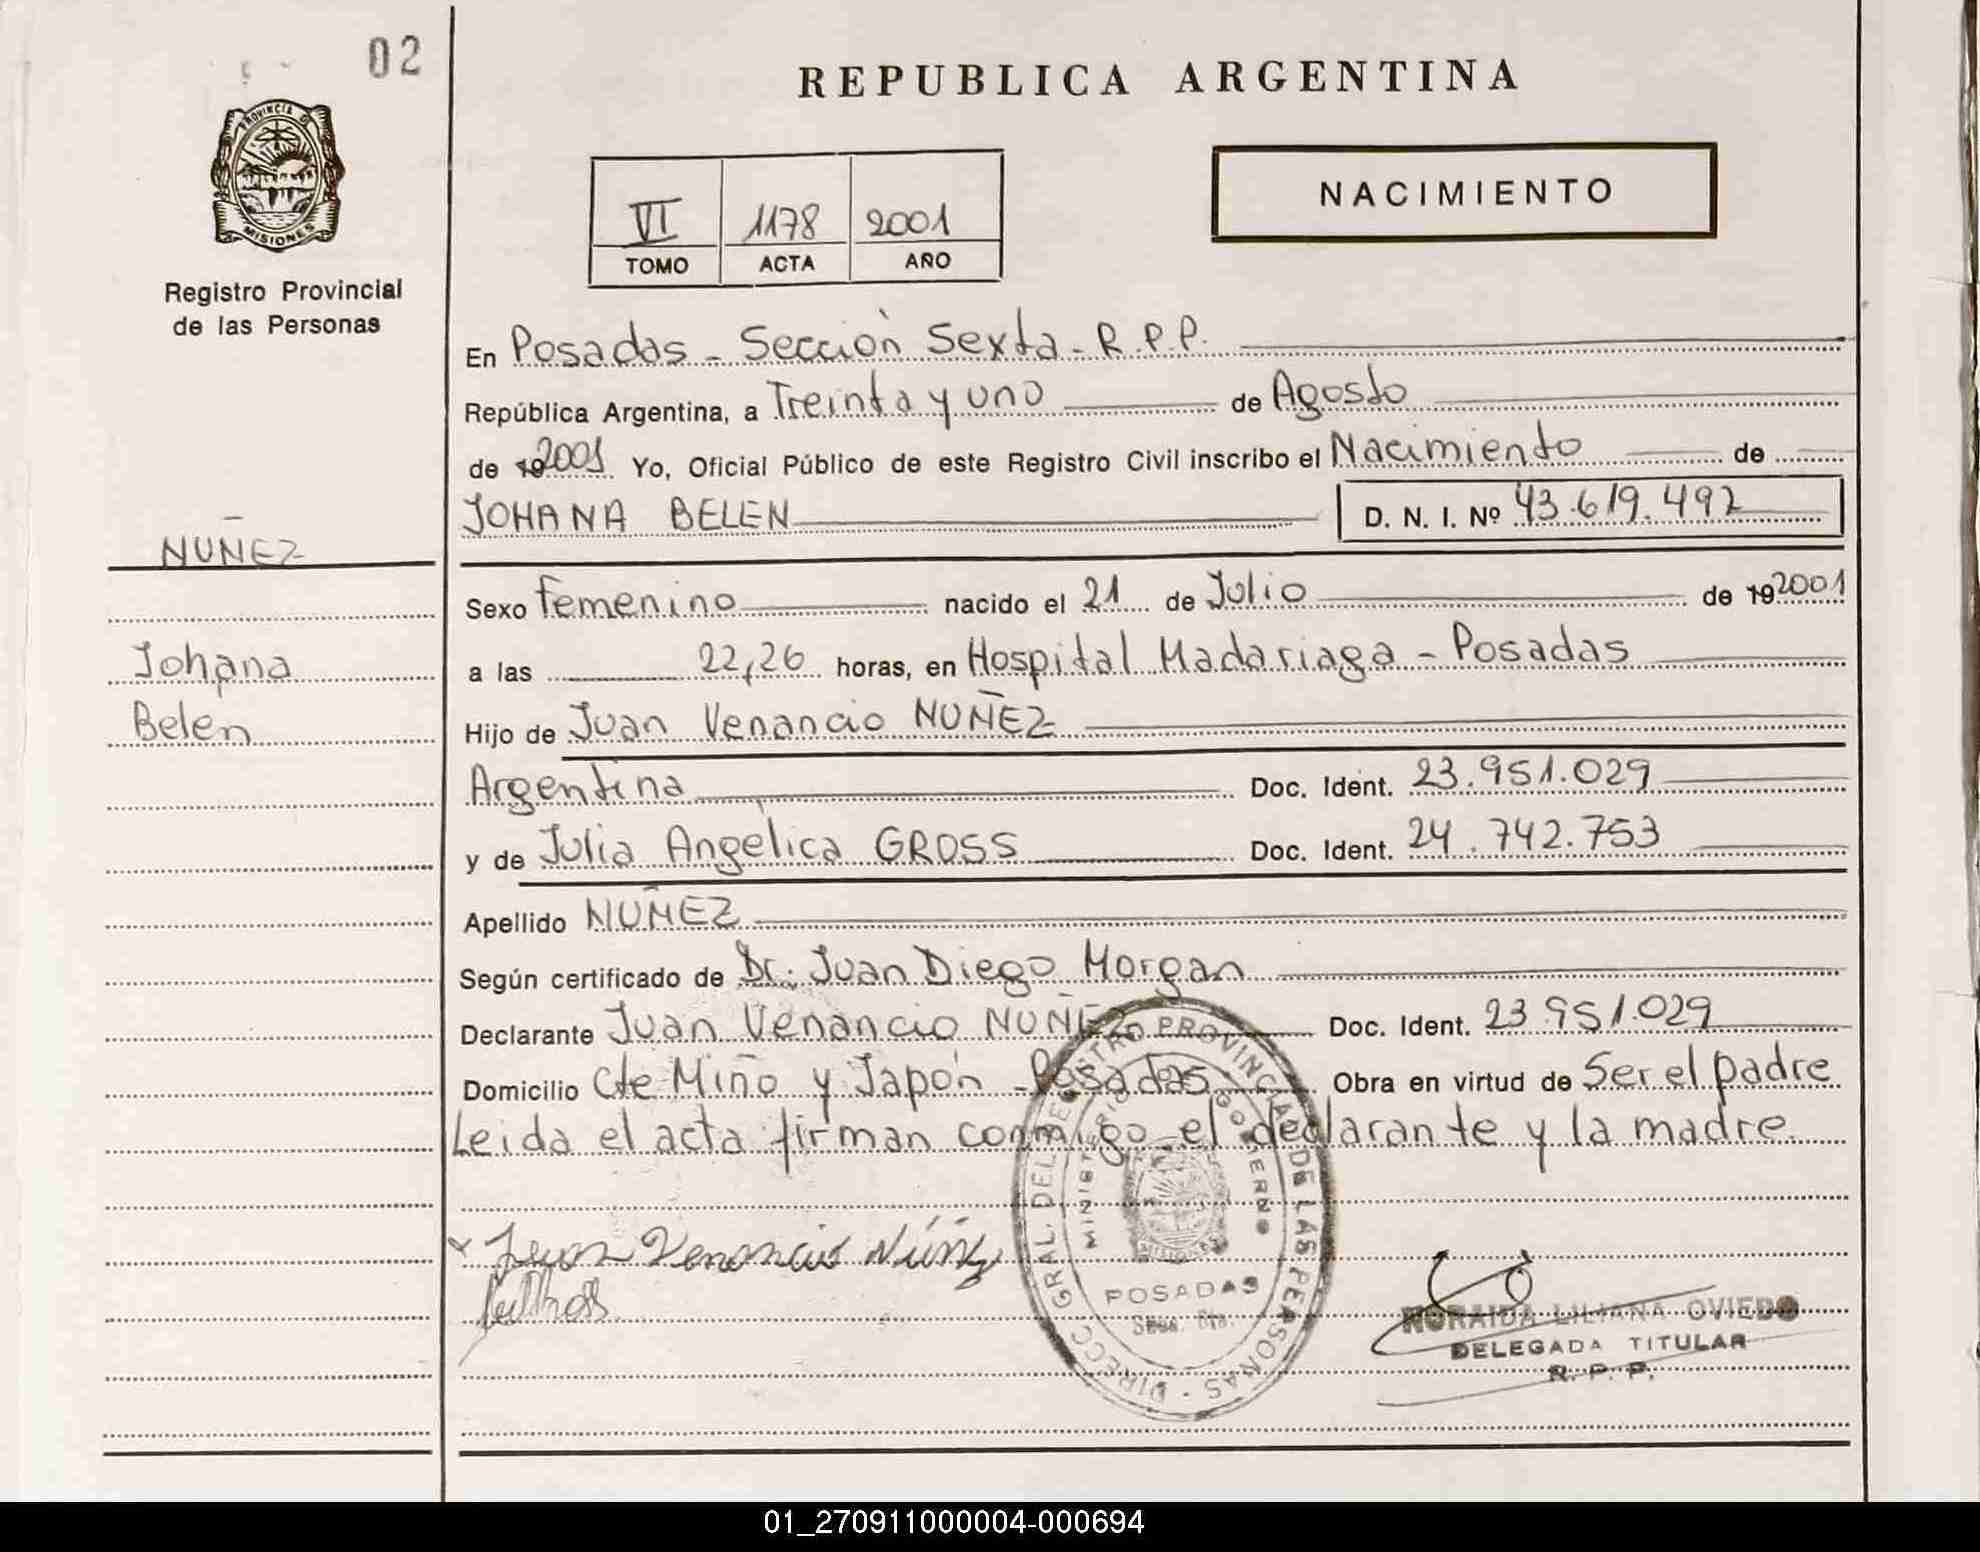 02
REPUBLICA ARGENTINA
PROVINCIA DE
MISIONES
Registro Provincial
de las Personas
VI 1178 2001
TOMO ACTA AÑO
NACIMIENTO
En Posadas - Sección Sexta - R.P.P.
República Argentina, a Treinta y uno de Agosto
de 192001 Yo, Oficial Público de este Registro Civil inscribo el Nacimiento de
JOHANA BELEN D. N. I. Nº 43.619.492
NUÑEZ
Johana
Belen
Sexo Femenino nacido el 21 de Julio de 192001
a las 22,26 horas, en Hospital Madariaga - Posadas
Hijo de Juan Venancio NUÑEZ
Argentina Doc. Ident. 23.951.029
y de Julia Angelica GROSS Doc. Ident. 24.742.753
Apellido NUÑEZ
Según certificado de Dr. Juan Diego Morgan
Declarante Juan Venancio NUÑEZ Doc. Ident. 23.951.029
Domicilio Cte Miño y Japón - Posadas Obra en virtud de Ser el padre
Leida el acta firman conmigo el declarante y la madre
x Juan Venancio Núñez
DIRECC. GRAL. DEL REGISTRO PROVINCIAL DE LAS PERSONAS
MINISTERIO DE GOBIERNO
MISIONES
POSADAS
NORAIDA LILIANA OVIEDO
DELEGADA TITULAR
R. P. P.
01_270911000004-000694